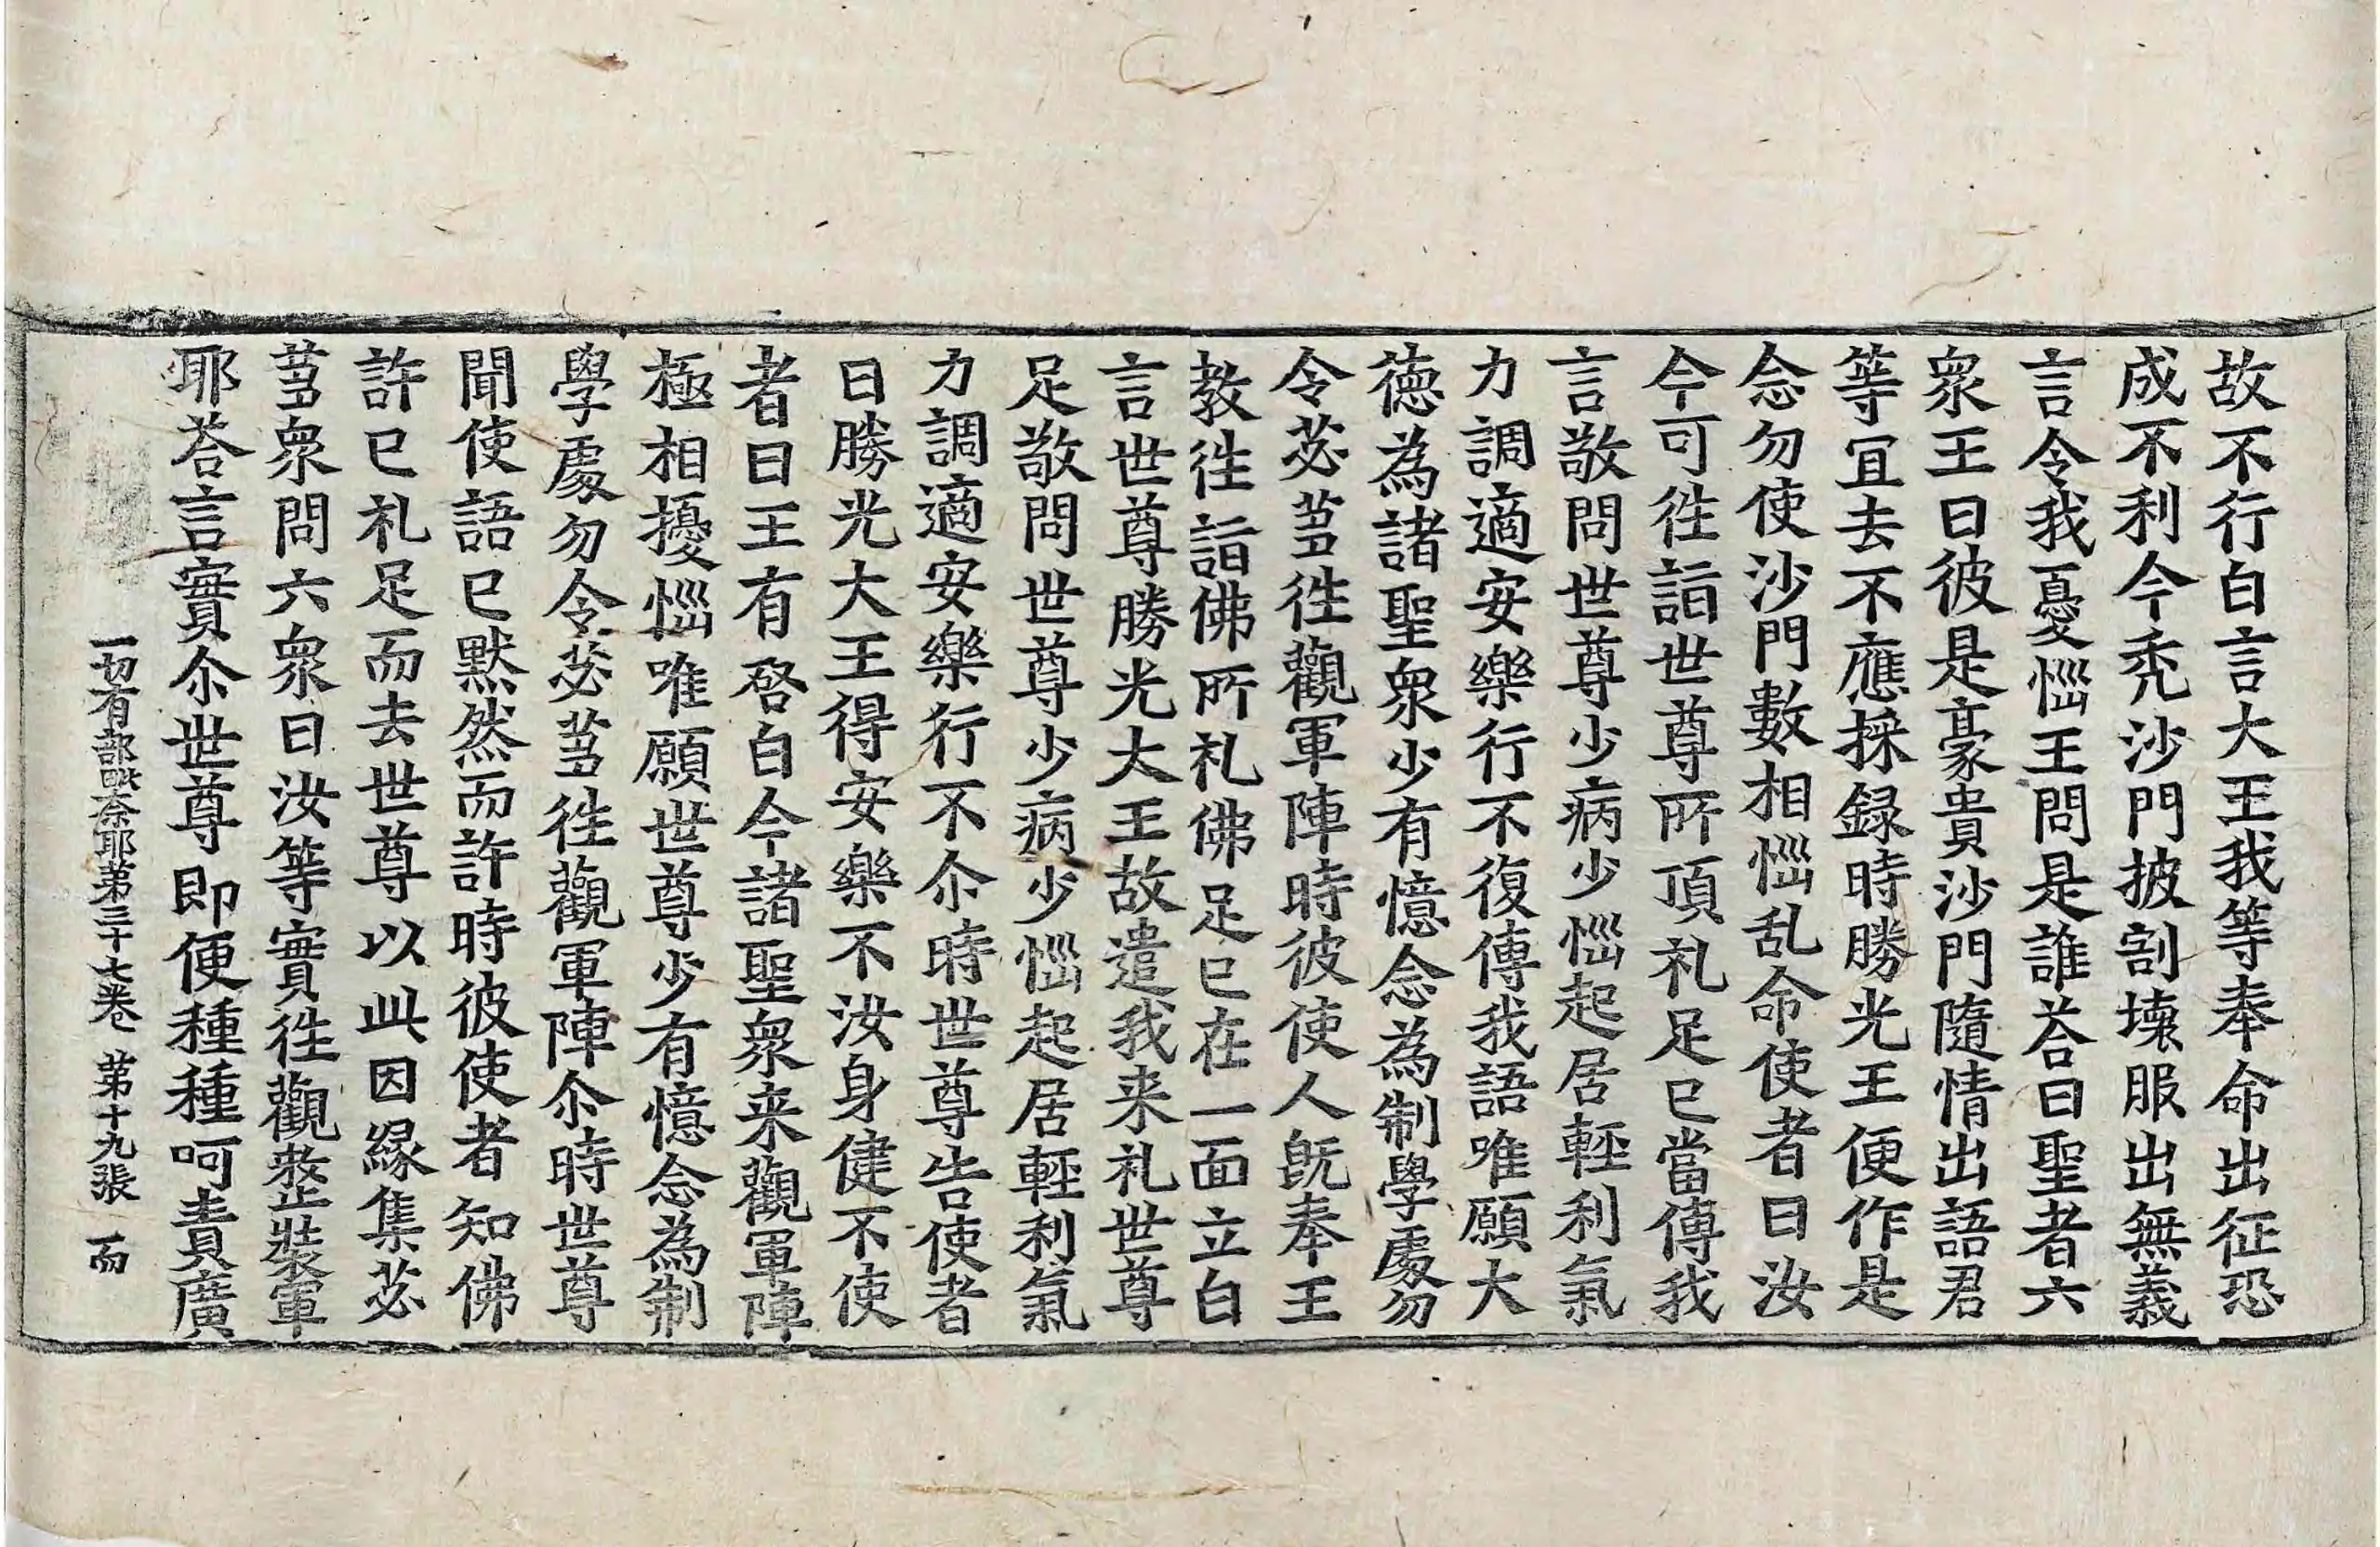 故不行白言大王我等奉命出征恐
成不利今秃沙門披割壞服出無義
言令我憂惱王問是誰荅曰聖者六
衆王曰彼是豪貴沙門隨情出語君
等冝去不應採録時勝光王便作是
念勿使沙門數相惱乱命使者曰汝
今可徃詣世尊所頂礼足已當傳我
言敬問世尊少病少惱起居輕利氣
力調適安樂行不復傳我語唯願大
德為諸聖衆少有憶念為制學處勿
令苾芻徃觀軍陣時彼使人旣奉王
教徃詣佛所礼佛足已在一面立白
言世尊勝光大王故遣我来礼世尊
足敬問世尊少病少惱起居輕利氣
力調適安樂行不尒時世尊告使者
曰勝光大王得安樂不汝身健不使
者曰王有啓白今諸聖衆来觀軍陣
極相擾惱唯願世尊少有憶念為制
學處勿令苾芻徃觀軍陣尒時世尊
聞使語已默然而許時彼使者知佛
許已礼足而去世尊以此因緣集苾
芻衆問六衆曰汝等實徃觀整裝軍
耶荅言實尒世尊即便種種呵責廣
一切有部毗奈耶第三十七卷 第十九張 而